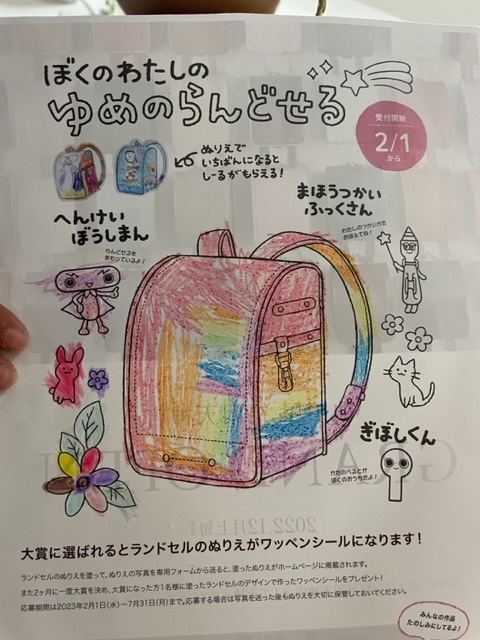 ぼくのわたしの
ゆめのらんどせる
受付開始
2/1
から
ぬりえで
いちばんになると
しーるがもらえる!
まほうつかい
ふっくさん
わたしのつかいかた
おぼえてね!
へんけい
ぼうしまん
らんどせるを
まもっているよ!
ぎぼしくん
かたのべるとが
ぼくのおうちだよ!
2022.12月上旬
大賞に選ばれるとランドセルのぬりえがワッペンシールになります!
ランドセルのぬりえを塗って、ぬりえの写真を専用フォームから送ると、塗ったぬりえがホームページに掲載されます。
また2ヶ月に一度大賞を決め、大賞になった方1名様に塗ったランドセルのデザインで作ったワッペンシールをプレゼント!
応募期間は2023年2月1日(水)〜7月31日(月)まで。応募する場合は写真を送った後もぬりえを大切に保管しておいてください。
みんなの作品
たのしみにしてるよ!